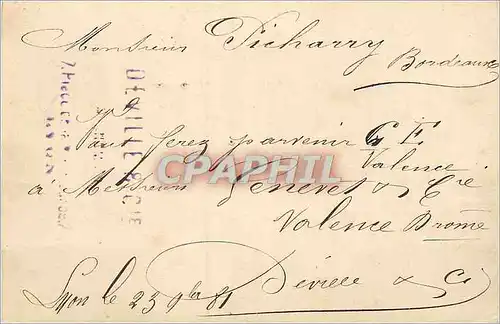 Monsieur Picharry
Bordeaux
Vous ferez parvenir G E
Valence
à Messieurs Genevet & Cie
Valence Drome
Lyon le 23 9bre 81 Déville & Cie
DEVILLE & CIE
CPARAMA
.COM